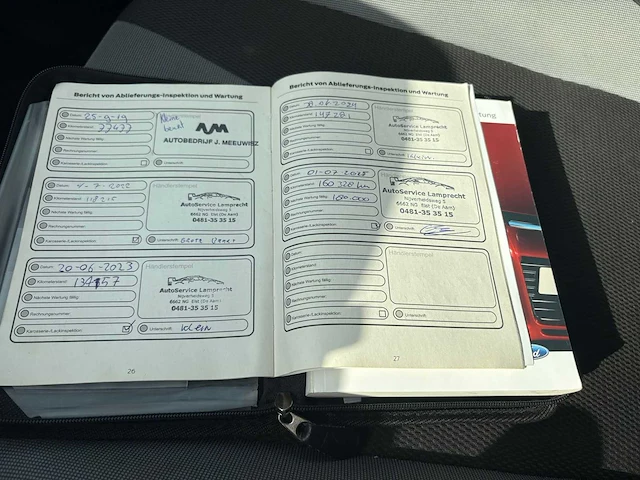 Bericht von Ablieferungs-Inspektion und Wartung
Datum: 25-9-19
Kilometerstand:
Nächste Wartung fällig:
Rechnungsnummer:
Karosserie-/Lackinspektion:
Unterschrift:
AUTOBEDRIJF J. MEEUWISZ
Datum: 4-7-2022
Kilometerstand: 118215
Nächste Wartung fällig:
Rechnungsnummer:
Karosserie-/Lackinspektion:
Händlerstempel
AutoService Lamprecht
Nijverheidsweg 5
6662 NG Elst (Ov Aam)
0481-35 35 15
Unterschrift:
Datum: 20-06-2023
Kilometerstand: 134157
Nächste Wartung fällig:
Rechnungsnummer:
Karosserie-/Lackinspektion:
Händlerstempel
AutoService Lamprecht
Nijverheidsweg 5
6662 NG Elst (Ov Aam)
0481-35 35 15
Unterschrift: klein
26
Bericht von Ablieferungs-Inspektion und Wartung
Datum:
Kilometerstand: 147281
Nächste Wartung fällig:
Rechnungsnummer:
Karosserie-/Lackinspektion:
Händlerstempel
AutoService Lamprecht
0481-35 35 15
Unterschrift:
Datum: 01-07-2025
Kilometerstand: 160 328 km
Nächste Wartung fällig: 180.000
Rechnungsnummer:
Karosserie-/Lackinspektion:
AutoService Lamprecht
Nijverheidsweg 5
6662 NG Elst (Ov Aam)
0481-35 35 15
Unterschrift:
Datum:
Kilometerstand:
Nächste Wartung fällig:
Rechnungsnummer:
Karosserie-/Lackinspektion:
Händlerstempel
Unterschrift:
27
tung
Ford